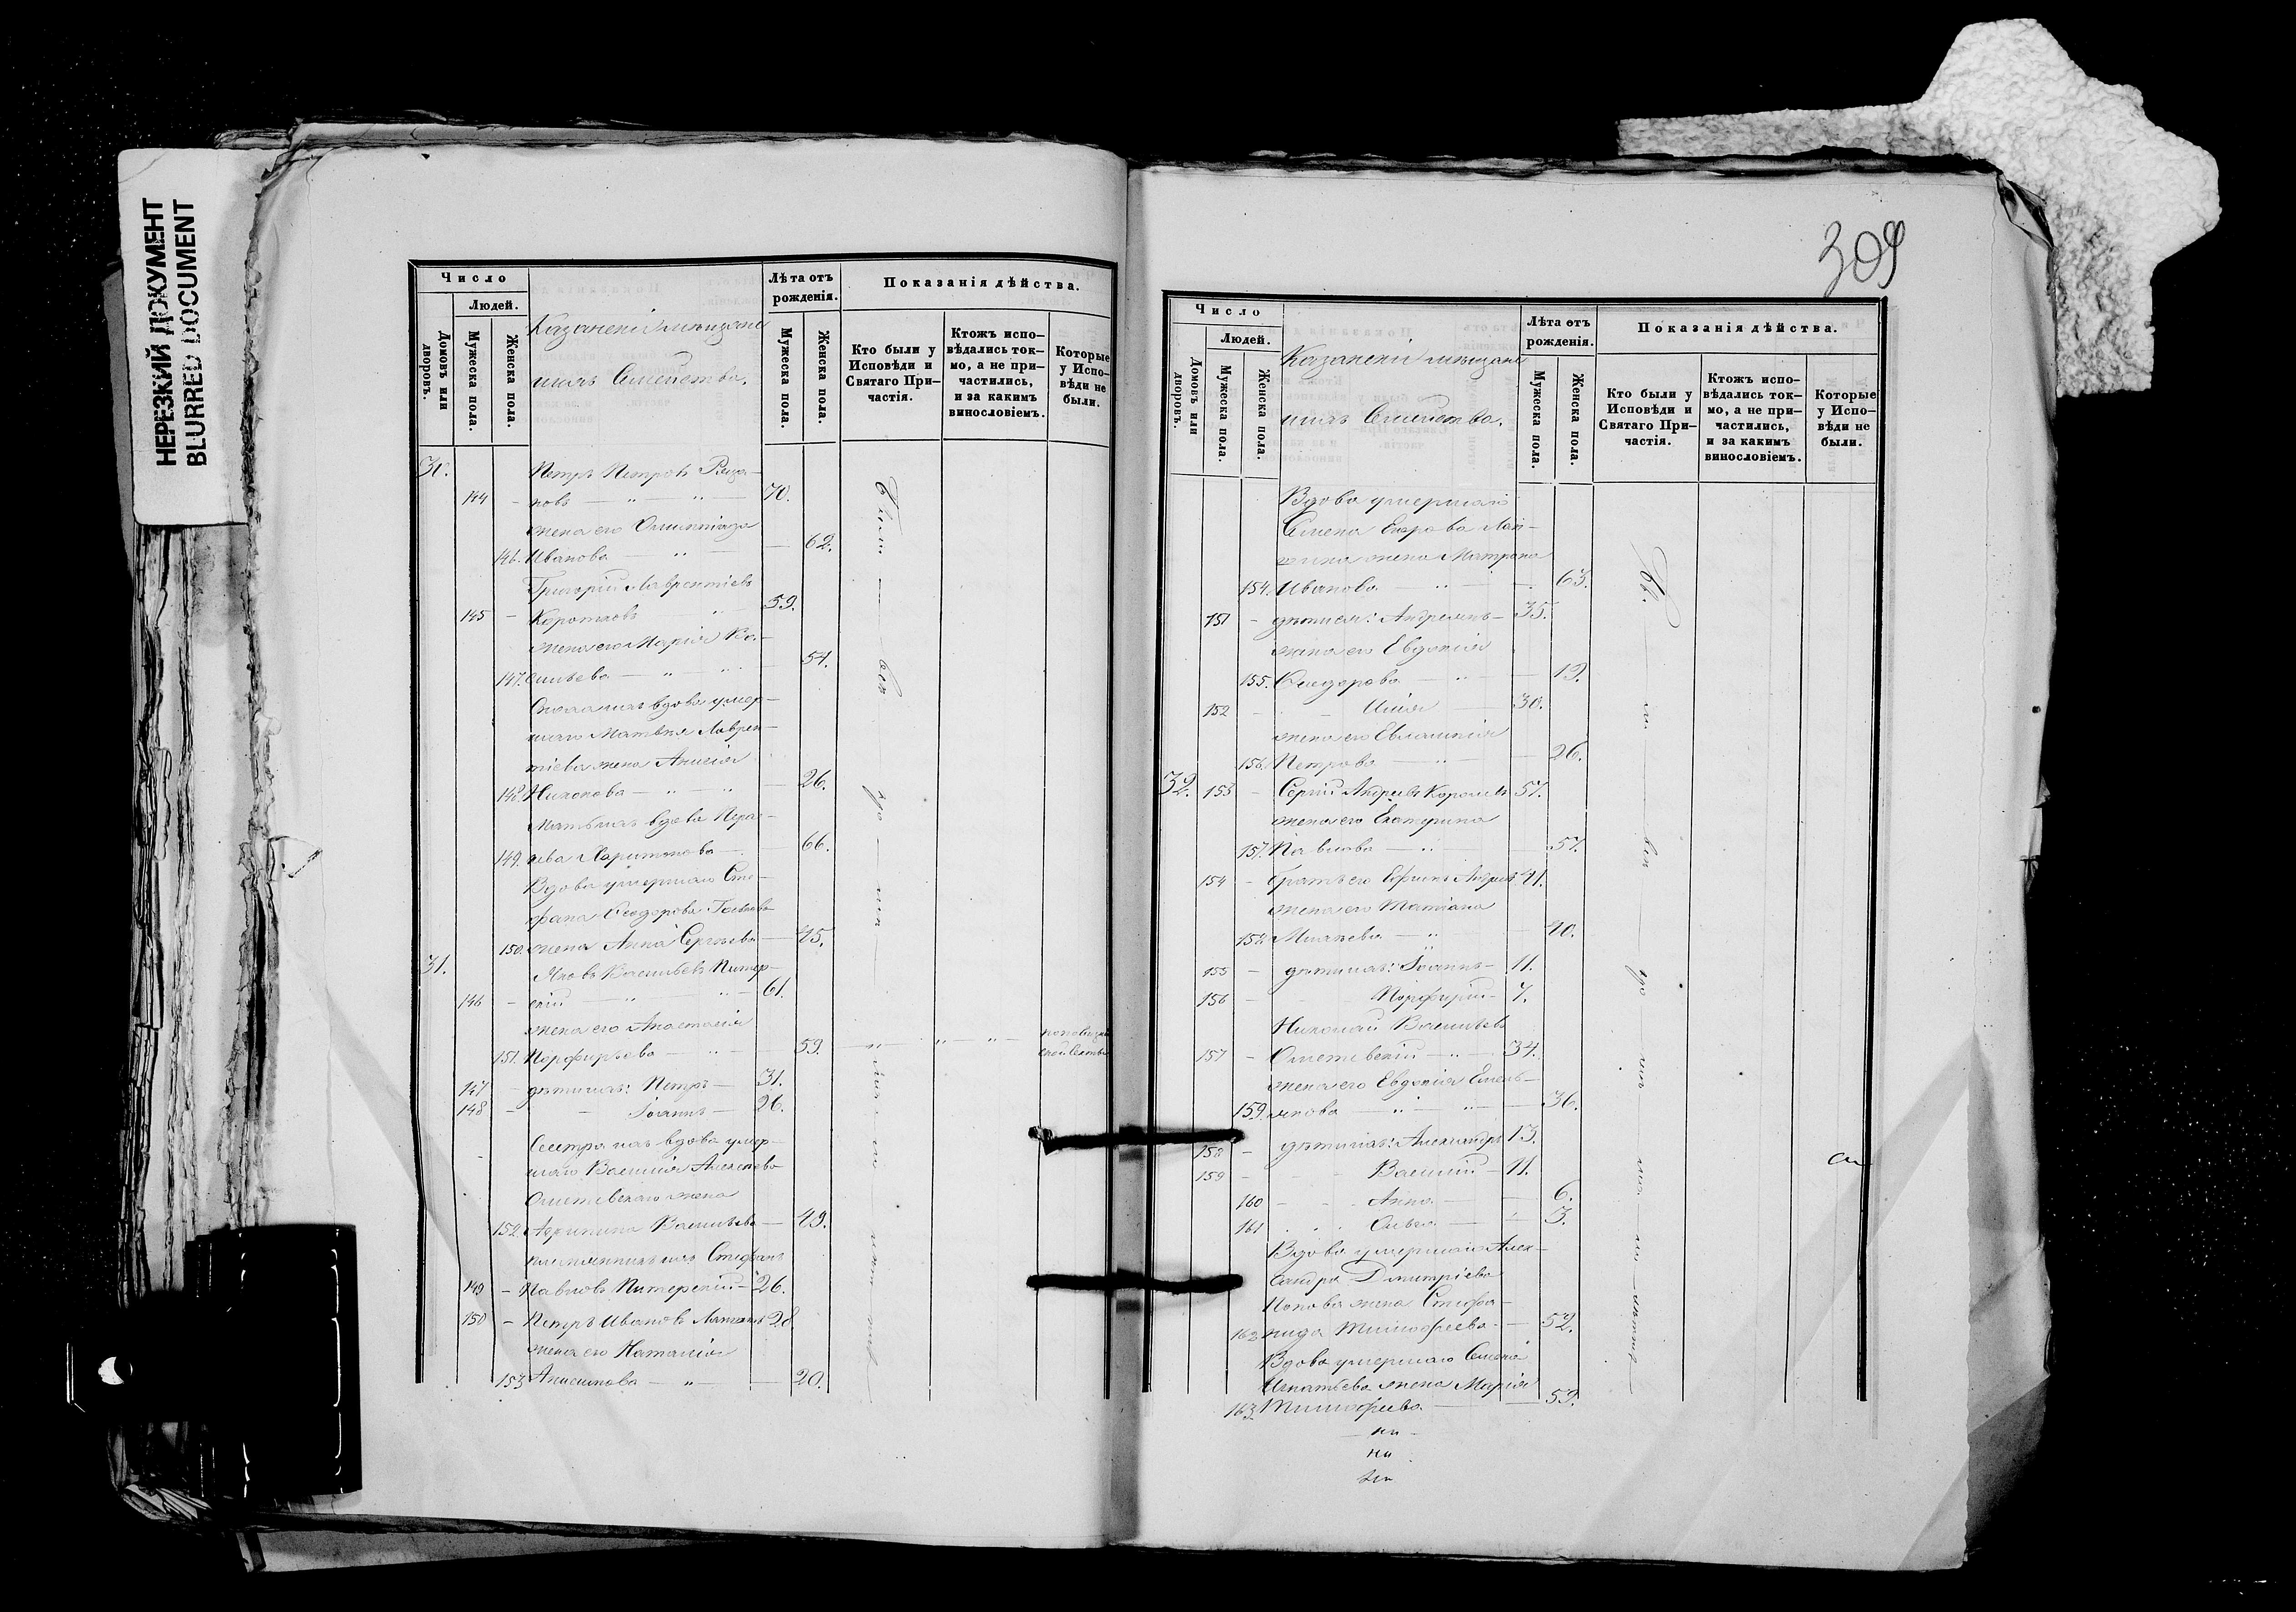 НЕРЕЗКИЙ ДОКУМЕНТ
BLURRED DOCUMENT
Число
Людей.
Домовъ или дворовъ.
Мужеска пола.
Женска пола.
Казанскіи мѣщане
ихъ Семейства.
Лѣта отъ рожденія.
Мужеска пола.
Женска пола.
Показанія дѣйства.
Кто были у Исповѣди и Святаго Причастія.
Ктожъ исповѣдались токмо, а не причастились, и за какимъ винословіемъ.
Которые у Исповѣди не были.
30. Петръ Петровъ Ряза-
144 - новъ — " — " — 70.
жена его Олимпіада
146. Иванова — " — 62.
Григорій Лаврентіевъ
145 - Коротковъ " — 59.
жена его Марія Ва-
147. сильева — " — " — 54.
Сноха ихъ вдова умер-
шаго Матвѣя Лаврен-
тіева жена Анисія
148. Никонова — " — " — 26.
Мать ихъ вдова Пела-
149. гева Харитонова — 66.
Вдова умершаго Сте-
фана Ѳеодорова
150. жена Анна Сергѣева — 45.
31. Яковъ Васильевъ Питер-
146 - скій — " — " — 61.
жена его Анастасія
151. Порфирьева — " — 59. — " — " — " —
147 - дѣти ихъ: Петръ — 31.
148 - - Іоаннъ — 26.
Сестра ихъ вдова умер-
шаго Василія Алексѣева
Ометевскаго жена
152. Агрипина Васильева — 49.
племянникъ ихъ Стефанъ
149 - Павловъ Питерскій — 26.
150 - Петръ Ивановъ 28
жена его Наталія
153 Анисимова — " — 20.
309
Число
Людей.
Домовъ или дворовъ.
Мужеска пола.
Женска пола.
Казанскіи мѣщане
ихъ Семейства.
Лѣта отъ рожденія.
Мужеска пола.
Женска пола.
Показанія дѣйства.
Кто были у Исповѣди и Святаго Причастія.
Ктожъ исповѣдались токмо, а не причастились, и за какимъ винословіемъ.
Которые у Исповѣди не были.
Вдова умершаго
Семена Егорова
жена Матрона
154. Иванова — " — 63.
151 - дѣти ея: Андреянъ — 35.
жена его Евдокія
155. Ѳеодорова — " — 19.
152 - - Илія — 30.
жена его Евлампія
156. Петрова — " — 26.
32. 153 - Сергій Андреевъ 57.
жена его Екатерина
157. Павлова — " — 57.
154 - братъ его Ефимъ Андреевъ 41.
жена его Татіана
158. — " — 40.
155 - дѣти ихъ: Іоаннъ — 11.
156 - - Порфирій — 7.
Николай Васильевъ
157 - Ометевскій — " — 34.
жена его Евдокія Емель-
159. янова " — " — 36.
158 - дѣти ихъ: Александръ 13.
159 - - Василій — 11.
160 - - Анна — 6.
161 - - Ольга — 3.
Вдова умершаго Алек-
сандра Дмитріева
Попова жена Стефа-
162 нида Тимофеева — 52.
Вдова умершаго Семена
Игнатьева жена Марія
163. Тимофеева — 59.